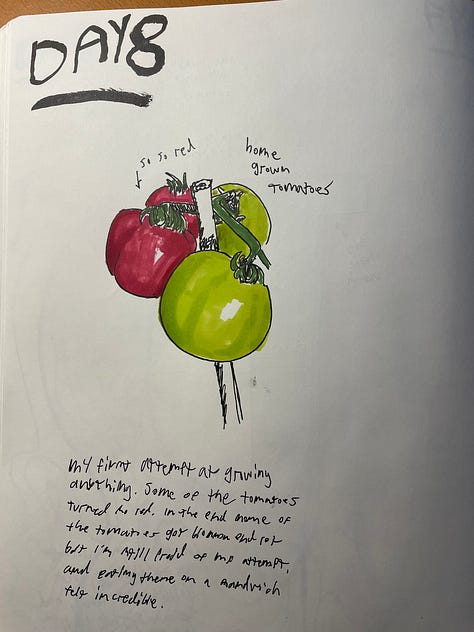 DAY8
so so red
home
grown
tomatoes
my first attempt at growing
anything. Some of the tomatoes
turned so red. in the end some of
the tomatoes got blossom end rot
but i'm still proud of my attempt.
and eating them on a sandwich
felt incredible.